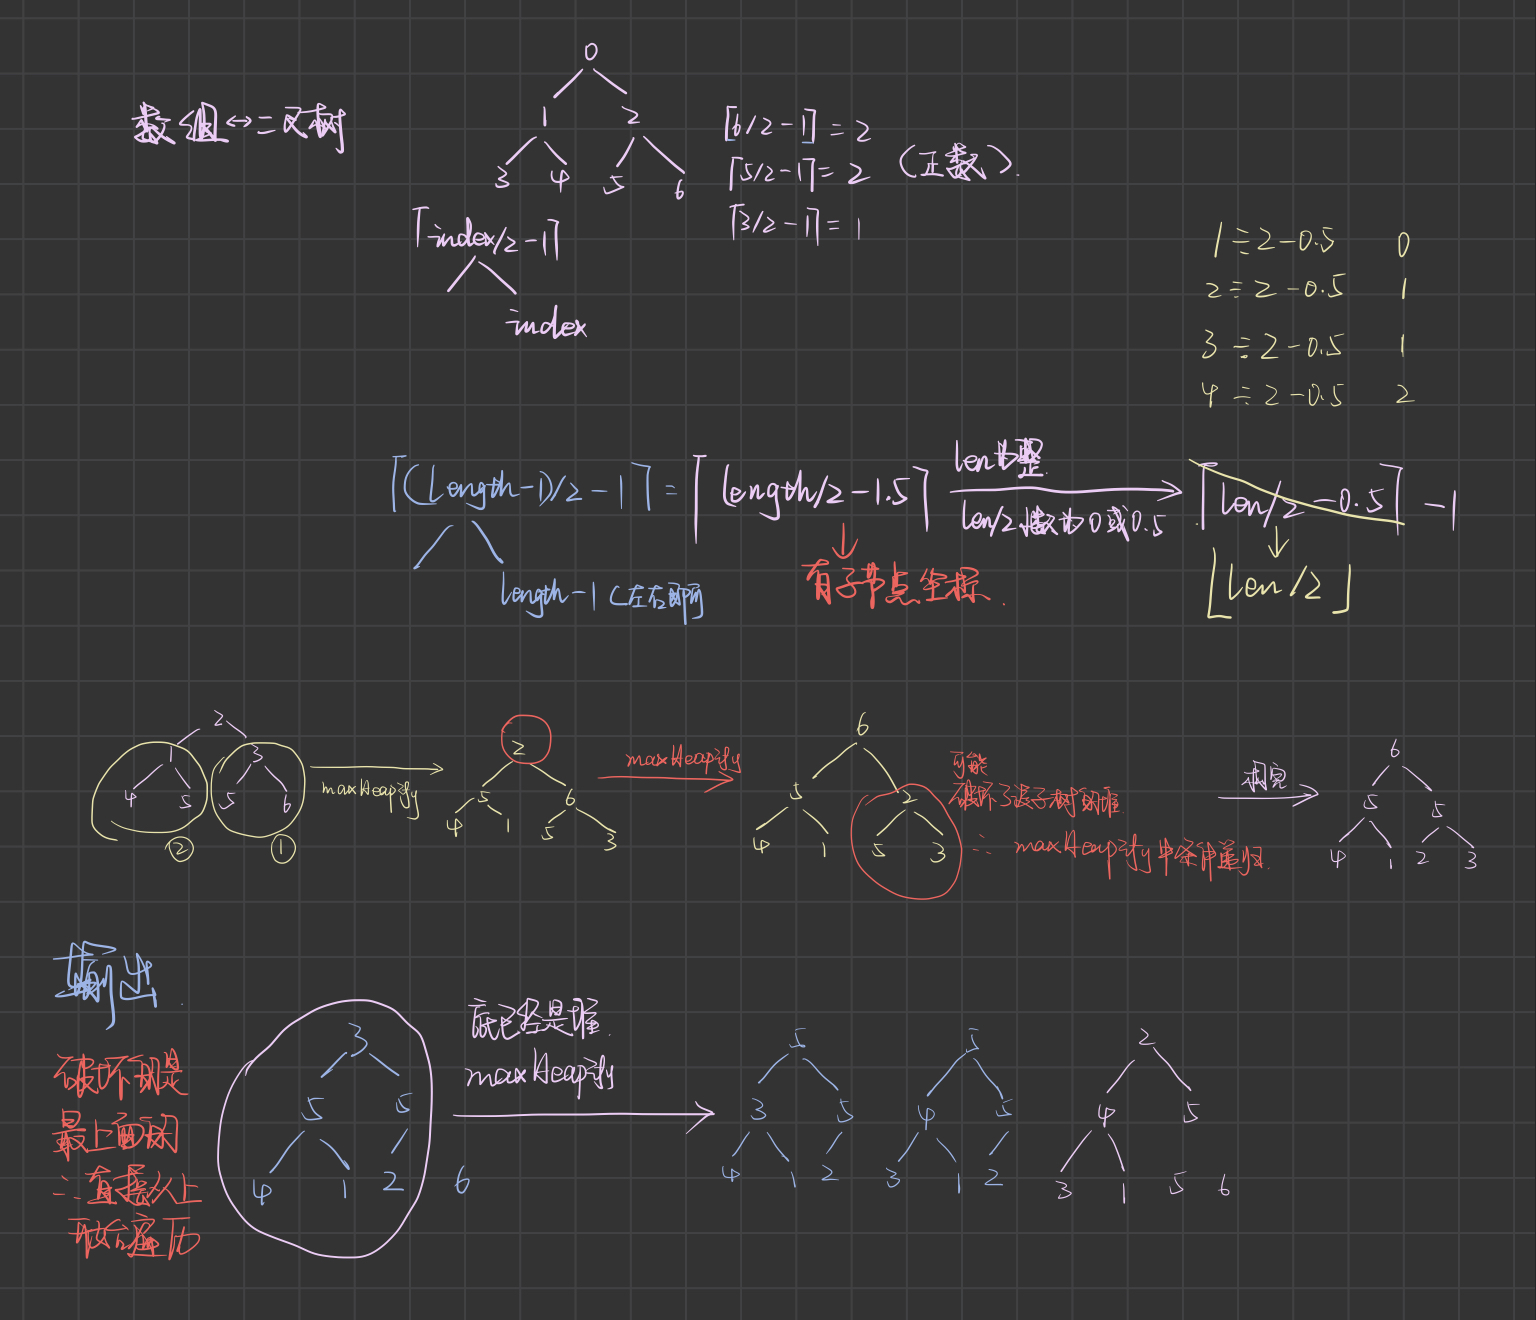 数组↔二叉树
0
1 2
3 4 5 6
⌈6/2-1⌉=2
⌈5/2-1⌉=2 (正数).
⌈3/2-1⌉=1
⌈index/2-1⌉
index
1÷2-0.5 0
2÷2-0.5 1
3÷2-0.5 1
4÷2-0.5 2
⌈(Length-1)/2-1⌉=⌈length/2-1.5⌉
len为整
len/2 数为0或0.5
⌈len/2-0.5⌉-1
length-1 (左右即可
↓
有子节点坐标.
↓
⌊len/2⌋
2
1 3
4 5 5 6
② ①
maxHeapify
2
5 6
4 1 5 3
maxHeapify
6
5 2
4 1 5 3
可能
破坏了该子树的堆
∴ maxHeapify中条件递归.
调完
6
5 5
4 1 2 3
输出.
破坏的是
最上面的
∴直接从上
开始遍历
3
5 5
4 1 2 6
底已经是堆.
maxHeapify
5
3 5
4 1 2
5
4 5
3 1 2
2
4 5
3 1 5 6